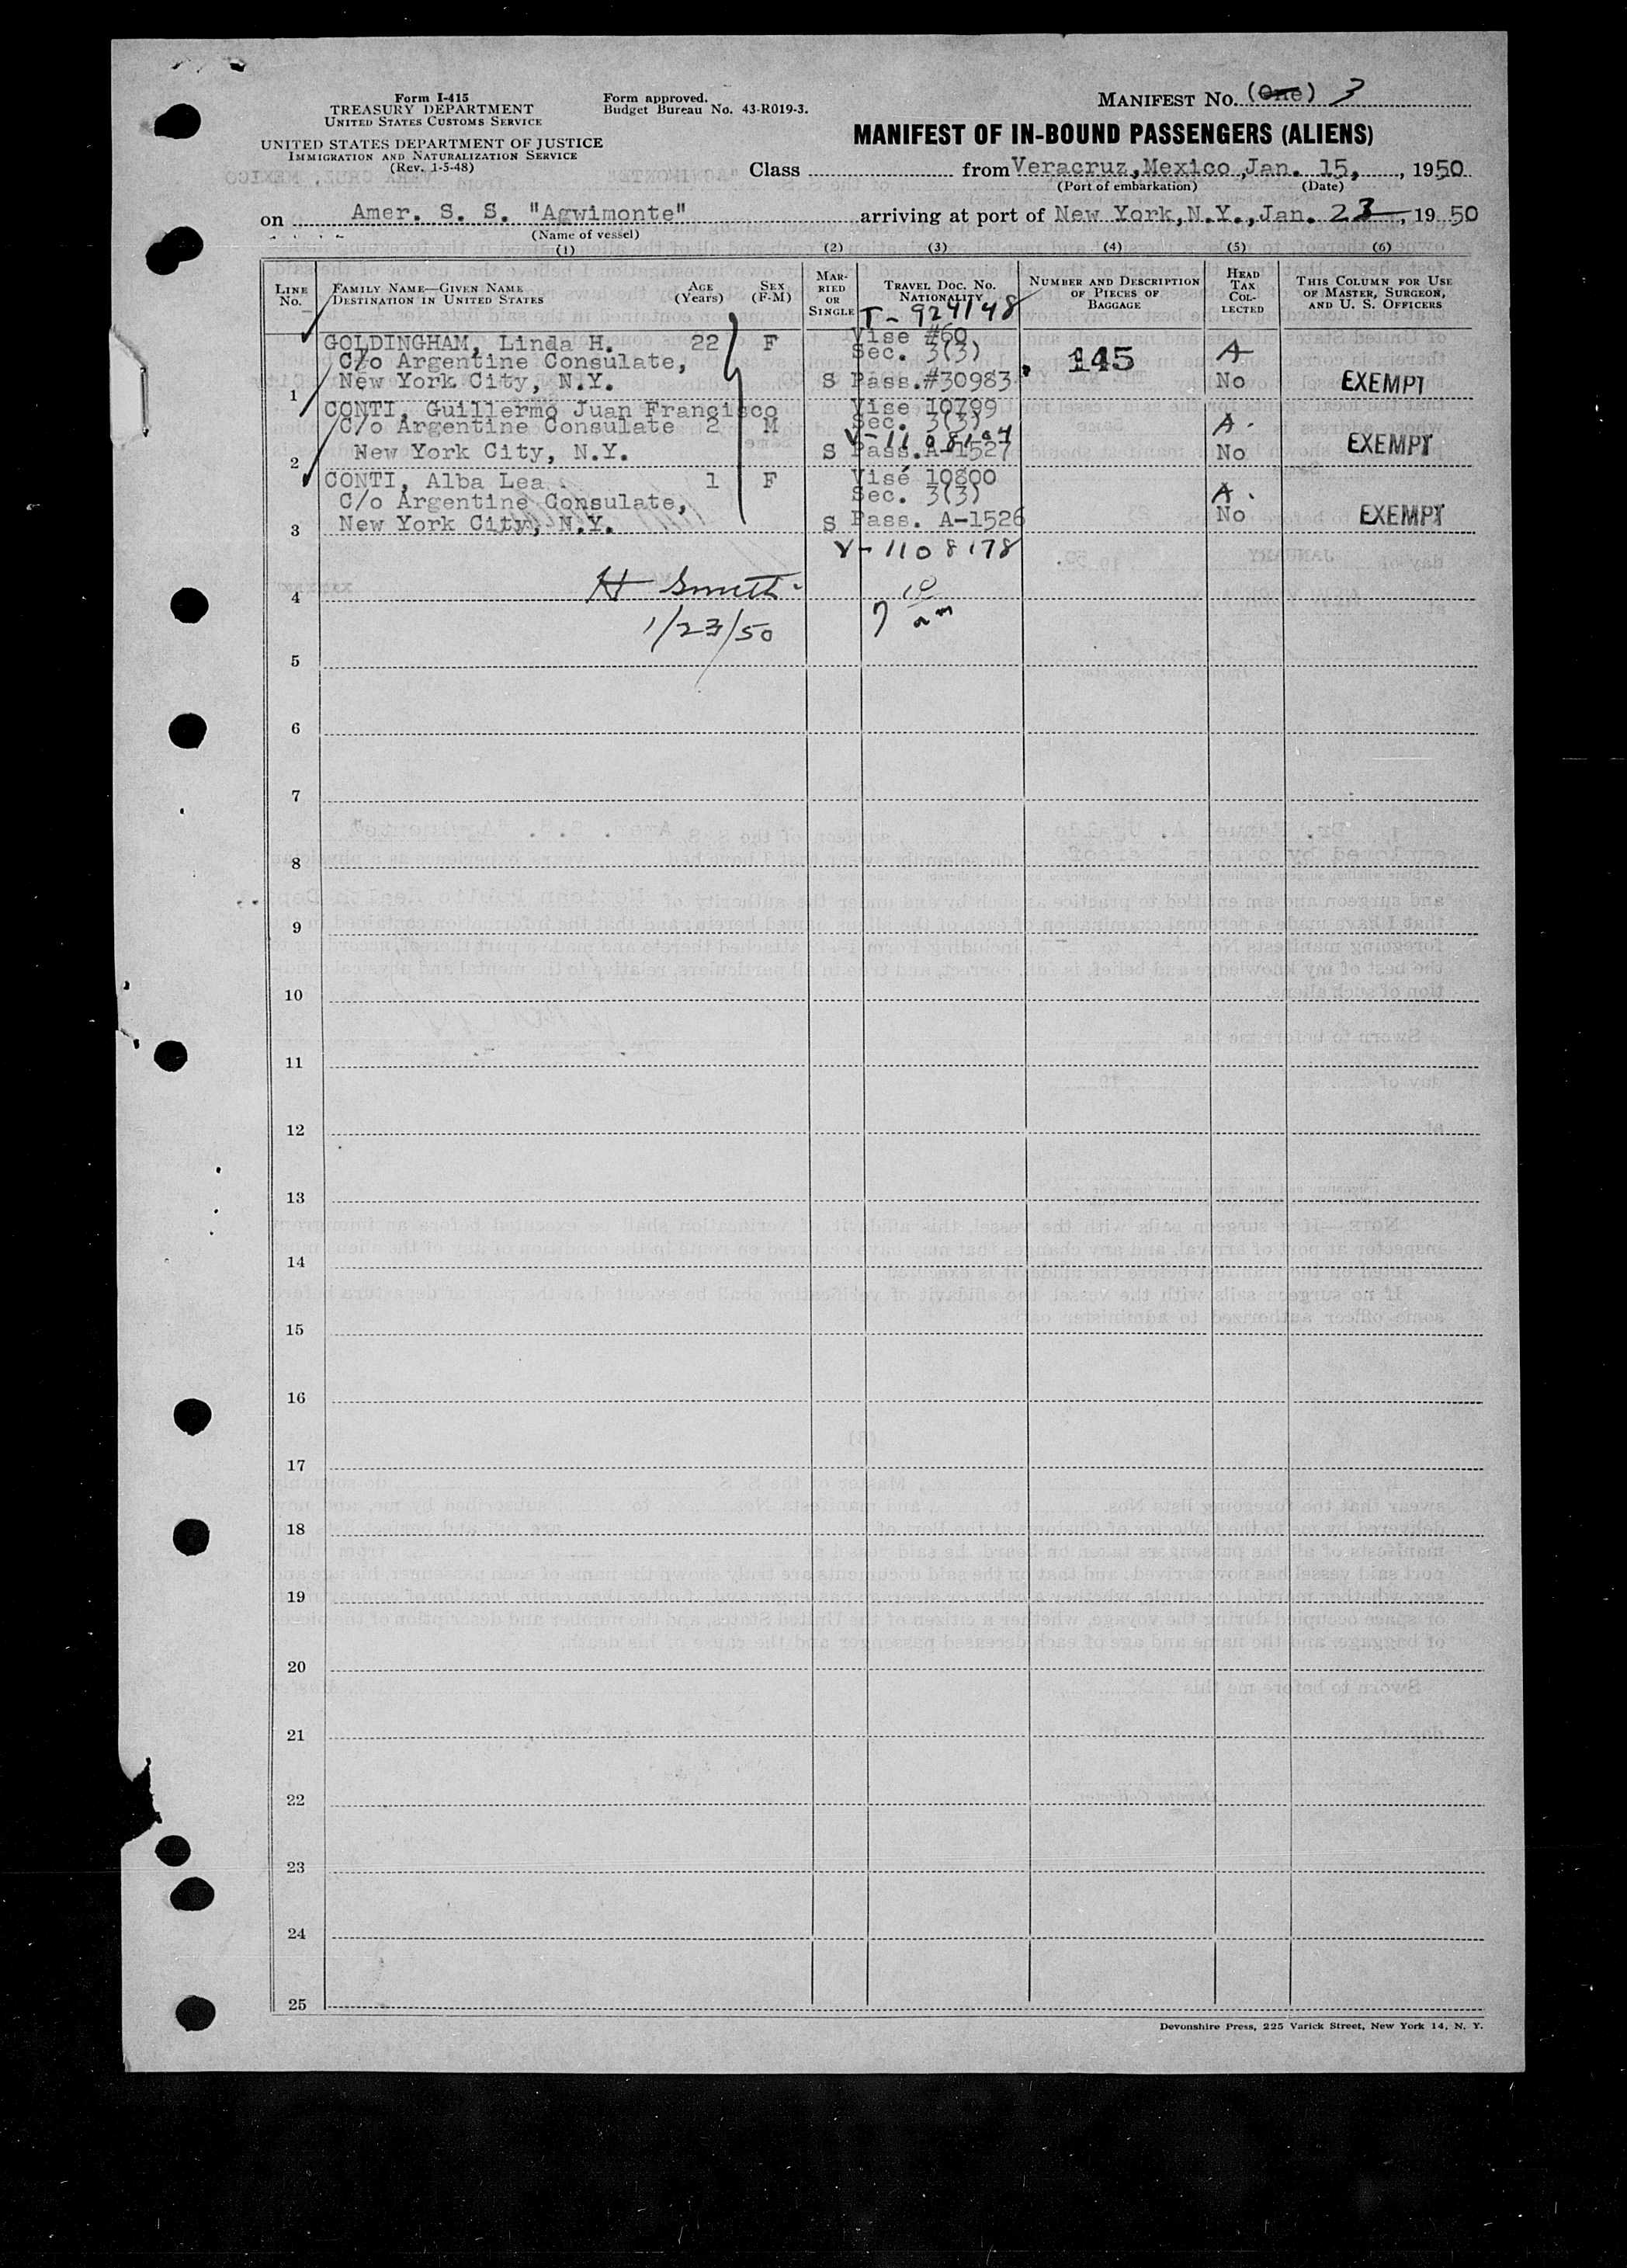 Form I-415
TREASURY DEPARTMENT
UNITED STATES CUSTOMS SERVICE
UNITED STATES DEPARTMENT OF JUSTICE
IMMIGRATION AND NATURALIZATION SERVICE
(Rev. 1-5-48)
Form approved.
Budget Bureau No. 43-R019-3.
MANIFEST NO. (One) 3
MANIFEST OF IN-BOUND PASSENGERS (ALIENS)
Class from Veracruz, Mexico, Jan. 15, , 1950
(Port of embarkation) (Date)
on Amer. S. S. "Agwimonte" arriving at port of New York, N.Y., Jan. 23, 1950
(Name of vessel)
(1) (2) (3) (4) (5) (6)
LINE NO.
FAMILY NAME—GIVEN NAME
DESTINATION IN UNITED STATES
AGE (Years)
SEX (F-M)
MARRIED OR SINGLE
TRAVEL DOC. NO.
NATIONALITY
NUMBER AND DESCRIPTION OF PIECES OF BAGGAGE
HEAD TAX COLLECTED
THIS COLUMN FOR USE OF MASTER, SURGEON, AND U. S. OFFICERS
T-924148
GOLDINGHAM, Linda H. 22 F Vise #60
C/o Argentine Consulate, Sec. 3(3) 145 A
1 New York City, N.Y. S Pass.#30983 No EXEMPT
CONTI, Guillermo Juan Francisco Vise 10799
C/o Argentine Consulate 2 M Sec. 3(3) A.
V-1108104
2 New York City, N.Y. S Pass.A-1527 No EXEMPT
CONTI, Alba Lea. 1 F Visé 10800
C/o Argentine Consulate, Sec. 3(3) A.
3 New York City, N.Y. S Pass. A-1526 No EXEMPT
V-1108178
4 H Smith 10
1/23/50 7 am
5
6
7
8
9
10
11
12
13
14
15
16
17
18
19
20
21
22
23
24
25
Devonshire Press, 225 Varick Street, New York 14, N. Y.